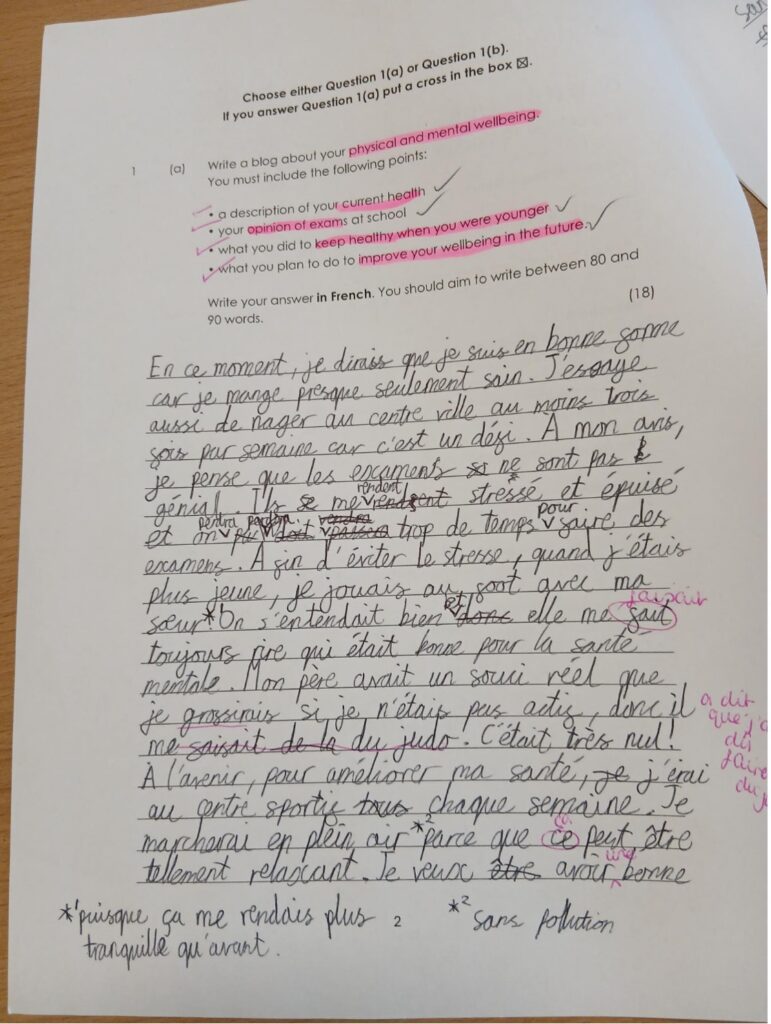 Choose either Question 1(a) or Question 1(b).
If you answer Question 1(a) put a cross in the box ☒.
1 (a) Write a blog about your physical and mental wellbeing.
You must include the following points:
• a description of your current health
• your opinion of exams at school
• what you did to keep healthy when you were younger
• what you plan to do to improve your wellbeing in the future.
Write your answer in French. You should aim to write between 80 and
90 words.
(18)
En ce moment, je dirais que je suis en bonne forme
car je mange presque seulement sain. J'essaye
aussi de nager au centre ville au moins trois
fois par semaine car c'est un défi. À mon avis,
je pense que les examents ne sont pas
génial. Ils me rendent stressé et épuisé
et on perdra trop de temps pour faire des
examens. Afin d'éviter le stresse, quand j'étais
plus jeune, je jouais au foot avec ma
sœur* On s'entendait bien et elle me fait
faisait
toujours rire qui était bonne pour la santé
mentale. Mon père avait un souci réel que
je grossirais si je n'étais pas actif, donc il
a dit
que j'
dû
faire
du j
me faisait de la du judo. C'était très nul!
À l'avenir, pour améliorer ma santé, j'érai
au centre sportif chaque semaine. Je
marcherai en plein air *² parce que ce peut être
ça
tellement relaxant. Je veux avoir une bonne
*¹ puisque ça me rendais plus
tranquille qu'avant.
2
*² sans pollution